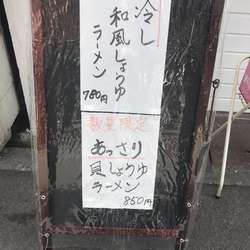 冷し
和風しょうゆ
ラーメン
780円
数量限定
あっさり
貝しょうゆ
ラーメン
850円